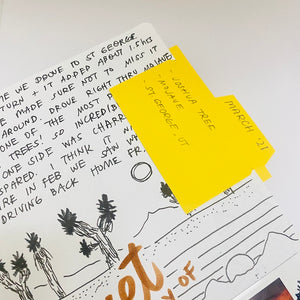 WE DROVE TO ST GEORGE
TURN + IT ADDED ABOUT 1.5 HRS
WE MADE SURE NOT TO MISS IT
AROUND. DROVE RIGHT THRU MOJAVE
ONE OF THE MOST
TREES! SO INCREDI
ONE SIDE WAS CHARR
SPARED. I THINK IT W
RE IN FEB WE SAW WA
DRIVING BACK HOME FR
- JOSHUA TREE
- MOJAVE
- ST. GEORGE, UT
MARCH '21
et
Y-OF